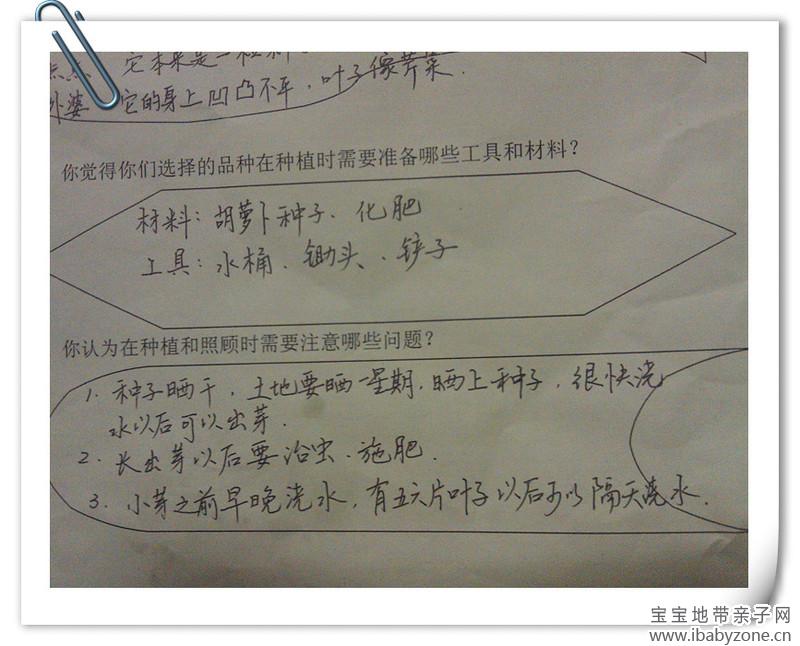 点点 它本来是一粒种
外婆 它的身上凹凸不平，叶子像芹菜.
你觉得你们选择的品种在种植时需要准备哪些工具和材料？
材料：胡萝卜种子、化肥
工具：水桶、锄头、铲子
你认为在种植和照顾时需要注意哪些问题？
1. 种子晒干，土地要晒一星期，晒上种子，很快浇
水以后可以出芽.
2. 长出芽以后要治虫、施肥.
3. 小芽之前早晚浇水，有五六片叶子以后可以隔天浇水.
宝宝地带亲子网
www.ibabyzone.cn